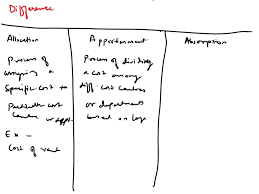 Difference
Allocation
Process of
assigning a
Specific Cost to
Particular Cost
Centre or dept
Ex -
Cost of rent
Apportionment
Process of dividing
a cost among
diff cost centres
or department
based on
Absorption